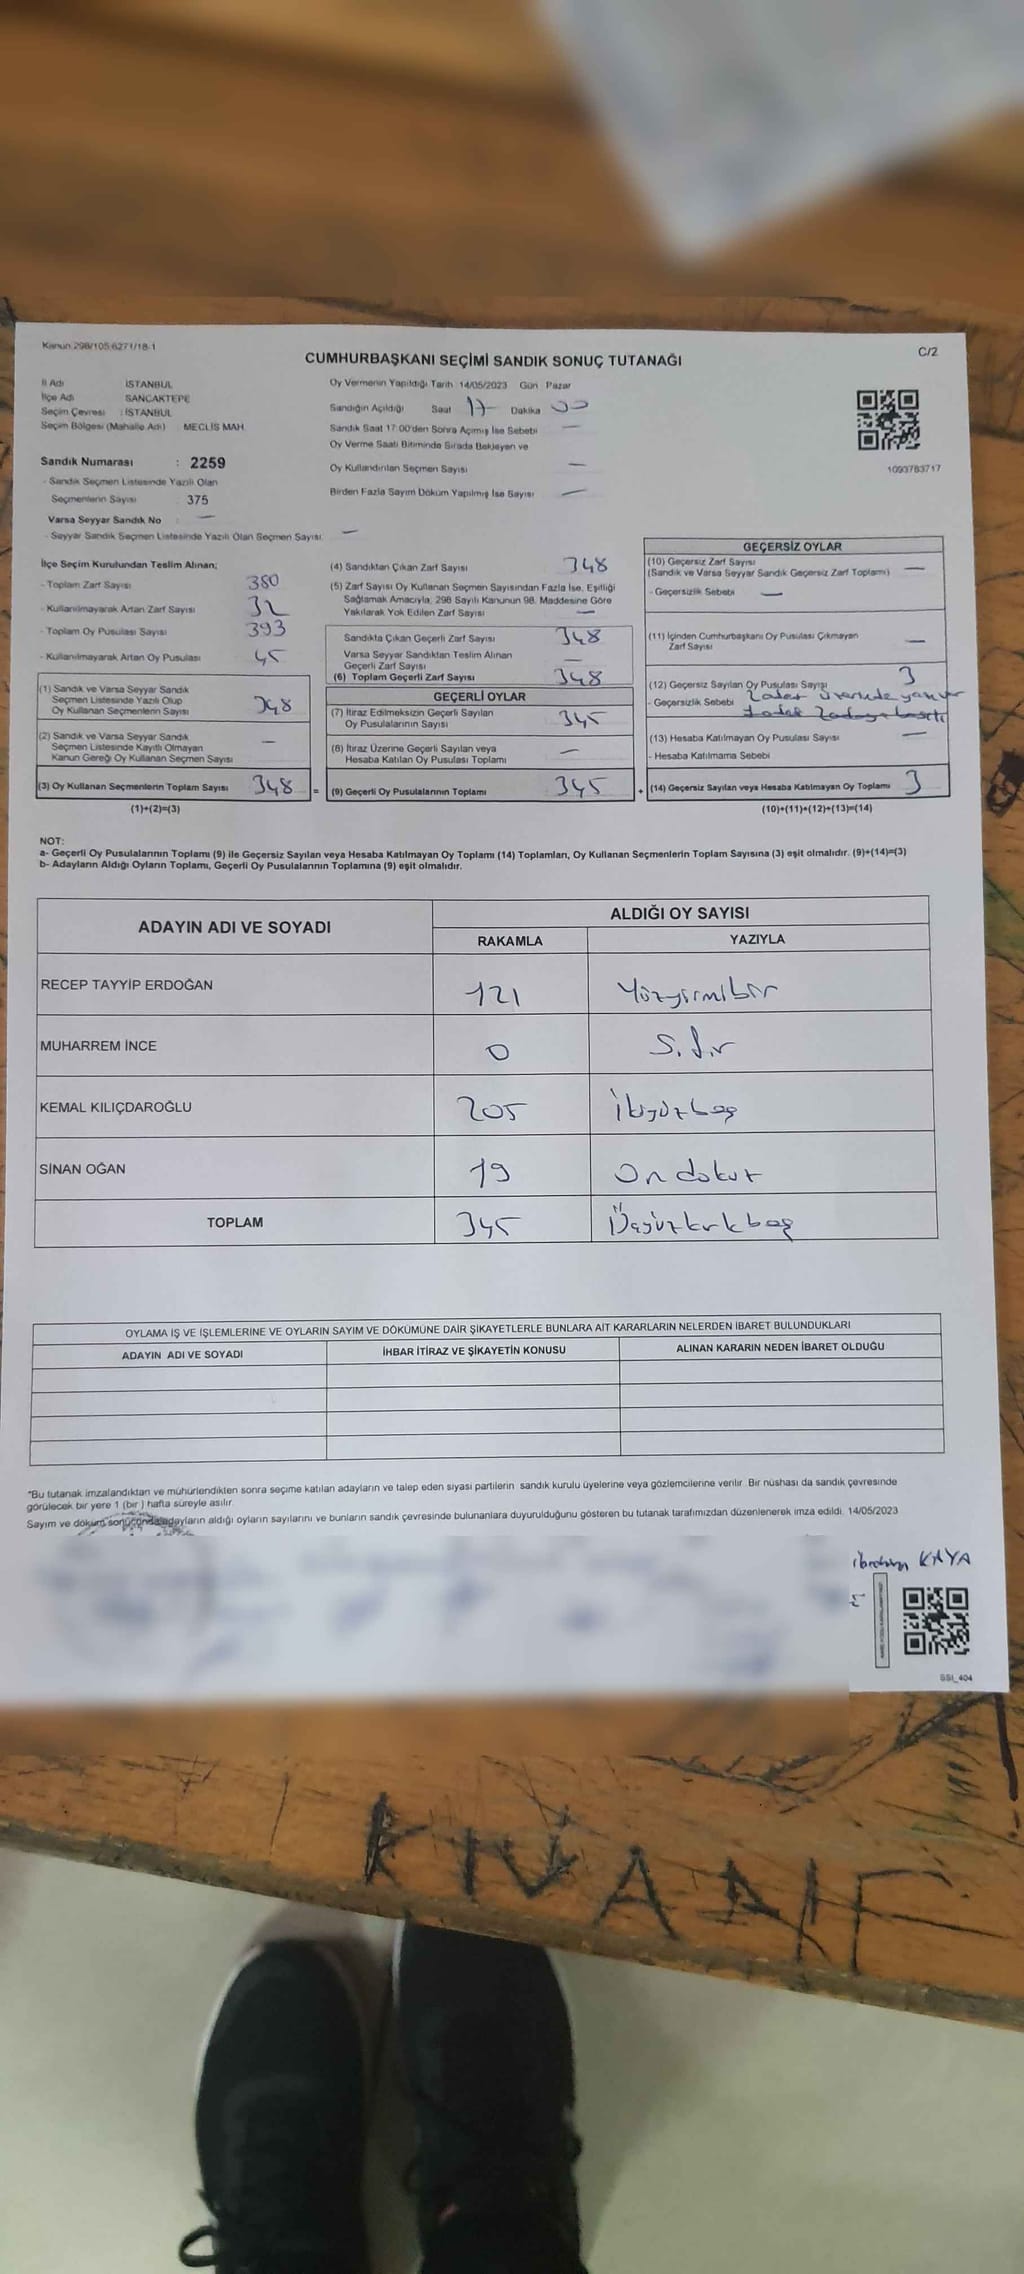 Kanun 298/105 6271/18-1
C/2
CUMHURBAŞKANI SEÇİMİ SANDIK SONUÇ TUTANAĞI
İl Adı İSTANBUL
İlçe Adı SANCAKTEPE
Seçim Çevresi : İSTANBUL
Seçim Bölgesi (Mahalle Adı) MECLİS MAH.
Sandık Numarası : 2259
- Sandık Seçmen Listesinde Yazılı Olan
Seçmenlerin Sayısı 375
Varsa Seyyar Sandık No : —
- Seyyar Sandık Seçmen Listesinde Yazılı Olan Seçmen Sayısı: —
Oy Vermenin Yapıldığı Tarih 14/05/2023 Gün Pazar
Sandığın Açıldığı Saat 17 Dakika 00
Sandık Saat 17:00'den Sonra Açımış İse Sebebi —
Oy Verme Saati Bitiminde Sırada Bekleyen ve
Oy Kullandırılan Seçmen Sayısı —
Birden Fazla Sayım Döküm Yapılmış İse Sayısı —
1093783717
İlçe Seçim Kurulundan Teslim Alınan;
- Toplam Zarf Sayısı 380
- Kullanılmayarak Artan Zarf Sayısı 32
- Toplam Oy Pusulası Sayısı 393
- Kullanılmayarak Artan Oy Pusulası 45
(1) Sandık ve Varsa Seyyar Sandık
Seçmen Listesinde Yazılı Olup
Oy Kullanan Seçmenlerin Sayısı 348
(2) Sandık ve Varsa Seyyar Sandık
Seçmen Listesinde Kayıtlı Olmayan
Kanun Gereği Oy Kullanan Seçmen Sayısı —
(3) Oy Kullanan Seçmenlerin Toplam Sayısı 348 =
(1)+(2)=(3)
(4) Sandıktan Çıkan Zarf Sayısı 348
(5) Zarf Sayısı Oy Kullanan Seçmen Sayısından Fazla İse, Eşitliği
Sağlamak Amacıyla, 298 Sayılı Kanunun 98. Maddesine Göre
Yakılarak Yok Edilen Zarf Sayısı —
Sandıkta Çıkan Geçerli Zarf Sayısı 348
Varsa Seyyar Sandıktan Teslim Alınan
Geçerli Zarf Sayısı —
(6) Toplam Geçerli Zarf Sayısı 348
GEÇERLİ OYLAR
(7) İtiraz Edilmeksizin Geçerli Sayılan
Oy Pusulalarının Sayısı 345
(8) İtiraz Üzerine Geçerli Sayılan veya
Hesaba Katılan Oy Pusulası Toplamı —
(9) Geçerli Oy Pusulalarının Toplamı 345 +
GEÇERSİZ OYLAR
(10) Geçersiz Zarf Sayısı
(Sandık ve Varsa Seyyar Sandık Geçersiz Zarf Toplamı) —
- Geçersizlik Sebebi —
(11) İçinden Cumhurbaşkanı Oy Pusulası Çıkmayan
Zarf Sayısı —
(12) Geçersiz Sayılan Oy Pusulası Sayısı 3
- Geçersizlik Sebebi 2 adet üzerinde yazı var
(13) Hesaba Katılmayan Oy Pusulası Sayısı —
- Hesaba Katılmama Sebebi
(14) Geçersiz Sayılan veya Hesaba Katılmayan Oy Toplamı 3
(10)+(11)+(12)+(13)=(14)
NOT:
a- Geçerli Oy Pusulalarının Toplamı (9) ile Geçersiz Sayılan veya Hesaba Katılmayan Oy Toplamı (14) Toplamları, Oy Kullanan Seçmenlerin Toplam Sayısına (3) eşit olmalıdır. (9)+(14)=(3)
b- Adayların Aldığı Oyların Toplamı, Geçerli Oy Pusulalarının Toplamına (9) eşit olmalıdır.
ADAYIN ADI VE SOYADI ALDIĞI OY SAYISI
RAKAMLA YAZIYLA
RECEP TAYYİP ERDOĞAN 121 Yüzyirmibir
MUHARREM İNCE 0 Sıfır
KEMAL KILIÇDAROĞLU 205 İkiyüzbeş
SİNAN OĞAN 19 On dokuz
TOPLAM 345 Üçyüzkırkbeş
OYLAMA İŞ VE İŞLEMLERİNE VE OYLARIN SAYIM VE DÖKÜMÜNE DAİR ŞİKAYETLERLE BUNLARA AİT KARARLARIN NELERDEN İBARET BULUNDUKLARI
ADAYIN ADI VE SOYADI İHBAR İTİRAZ VE ŞİKAYETİN KONUSU ALINAN KARARIN NEDEN İBARET OLDUĞU
"Bu tutanak imzalandıktan ve mühürlendikten sonra seçime katılan adayların ve talep eden siyasi partilerin sandık kurulu üyelerine veya gözlemcilerine verilir. Bir nüshası da sandık çevresinde
görülecek bir yere 1 (bir) hafta süreyle asılır.
Sayım ve döküm sonucunda adayların aldığı oyların sayılarını ve bunların sandık çevresinde bulunanlara duyurulduğunu gösteren bu tutanak tarafımızdan düzenlenerek imza edildi. 14/05/2023
İbrahim KAYA
SSI_404
KIVANÇ